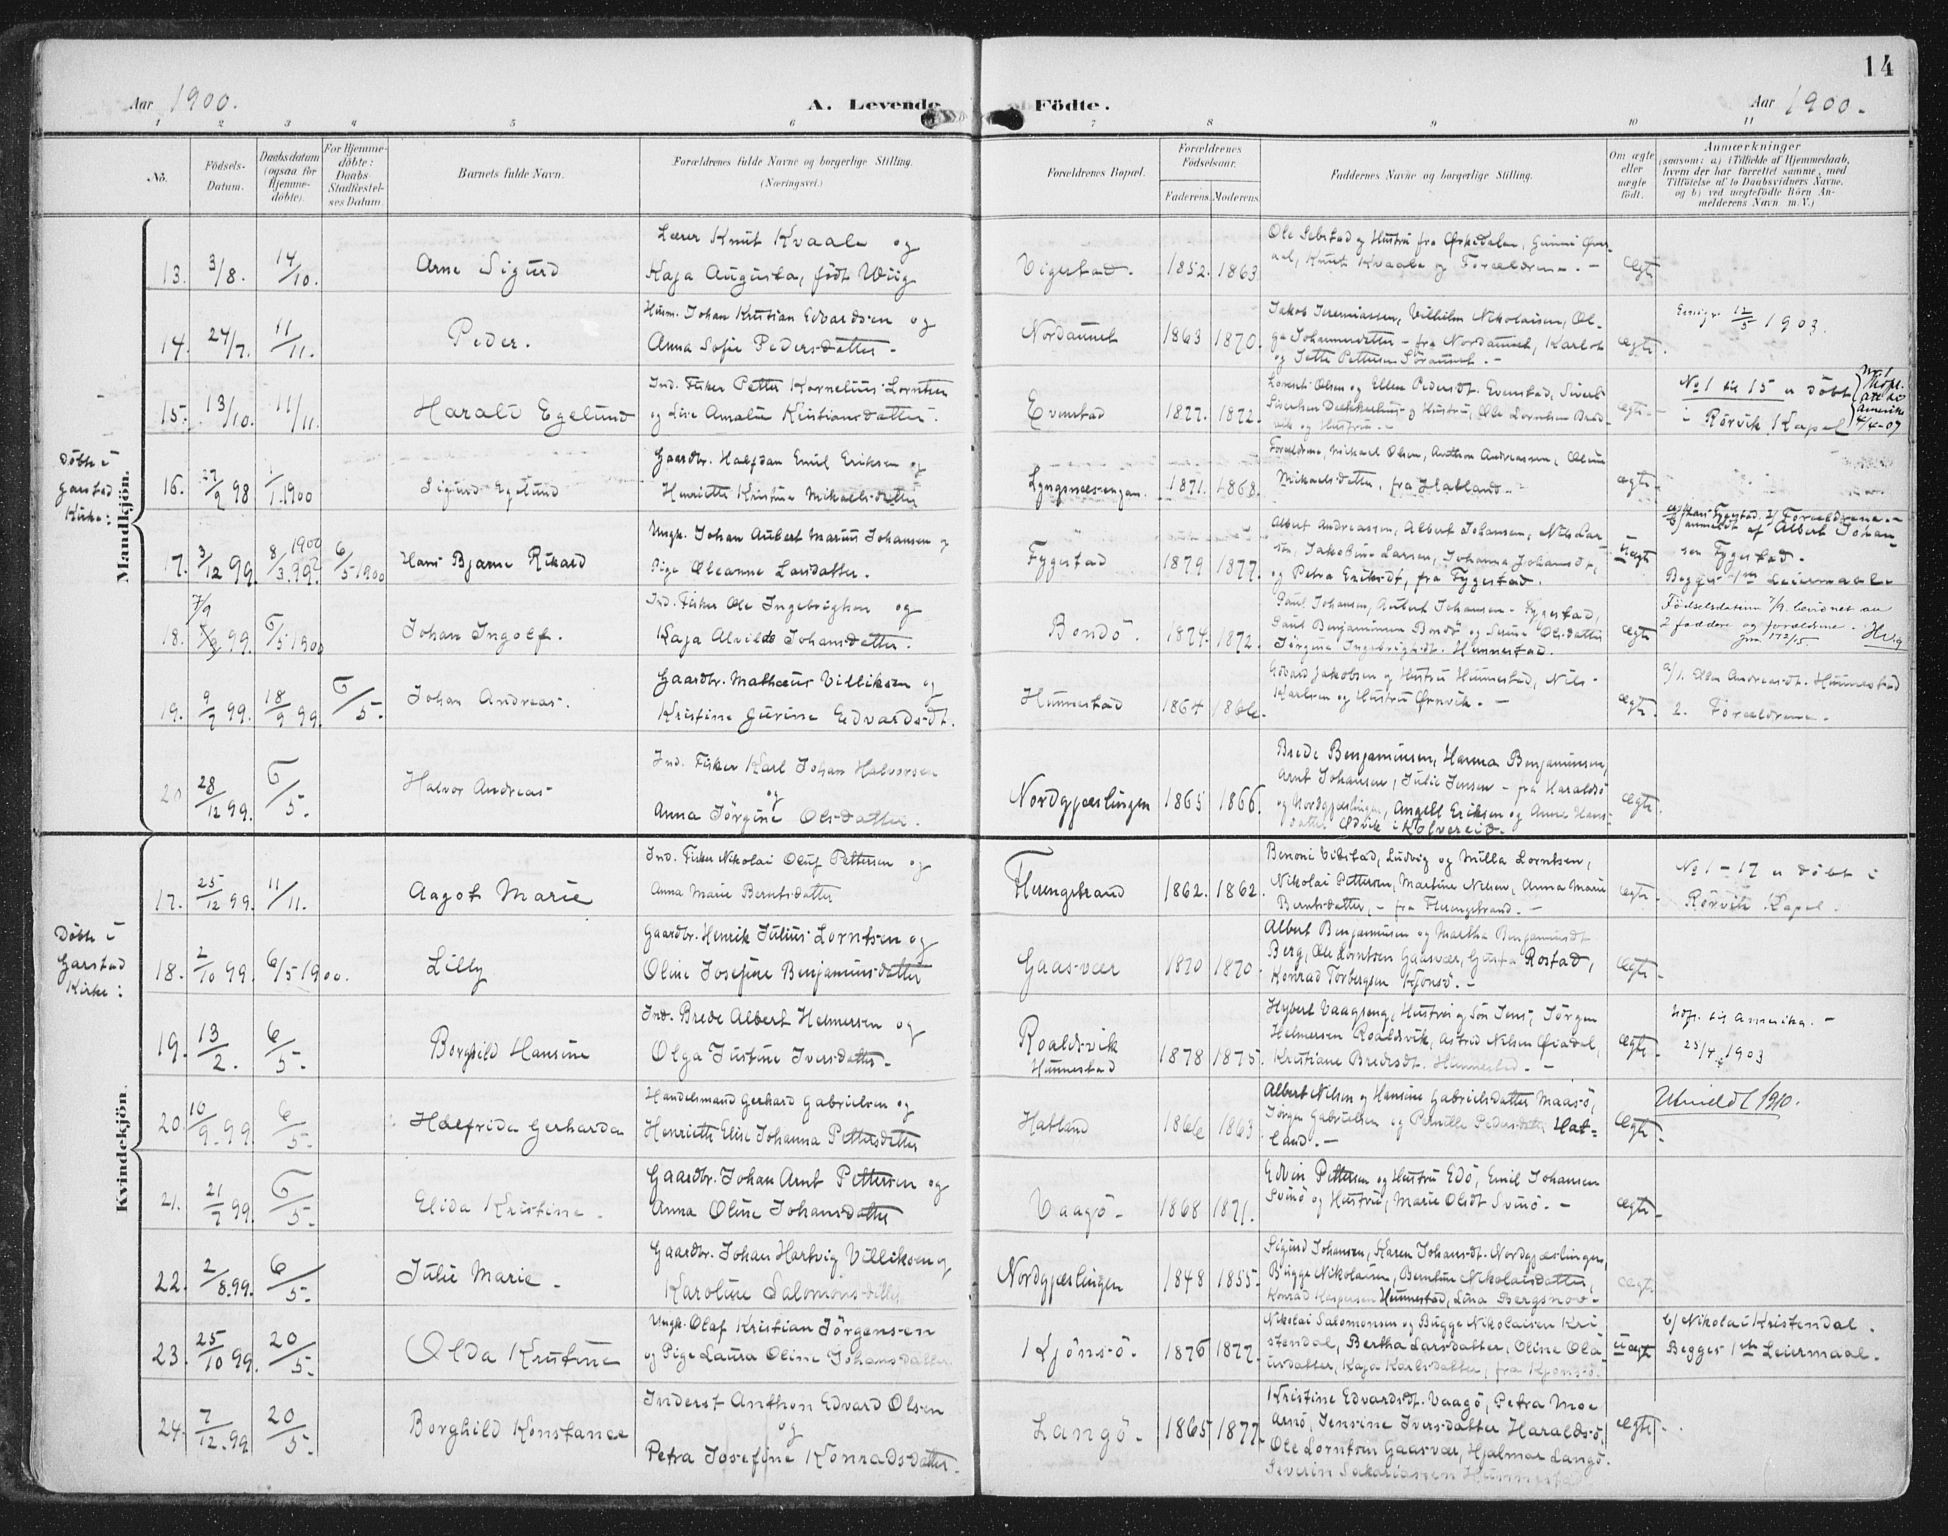 14
Aar 1900.
A. Levende
Födte.
Aar 1900.
1 2 3 4 5 6 7 8 9 10 11
No.
Födsels-
Datum.
Daabsdatum
(ogsaa for
Hjemme-
döbte).
For Hjemme-
döbte:
Daabs-
Stadfæstel-
ses Datum
Barnets fulde Navn.
Forældrenes fulde Navne og borgerlige Stilling.
(Næringsvei.)
Forældrenes Bopæl.
Forældrenes
Födselsaar.
Faderens. Moderens.
Faddernes Navne og borgerlige Stilling.
Om ægte
eller
uægte
födt.
Anmærkninger
(saasom: a) i Tilfælde af Hjemmedaab,
hvem der har forrettet samme, med
Tilföielse af to Daabsvidners Navne,
og b) ved uægtefödte Börn An-
melderens Navn m. V.)
Mandkjön.
13. 3/8. 14/10. Arne Sigurd
Lærer Knut Kvaale og
Kaja Augusta, födt Wiig
Vigestad. 1852. 1863
aal, Knut Kvaale og Forældrene. -
Ægte
14. 24/7. 11/11. Peder.
Husm. Johan Kristian Edvardsen og
Anna Sofie Pedersdatter -
Nordaunet 1863 1870.
Jakob Jeremiassen, Vilhelm Nikolaisen, Ol-
ga Johannesdatter - fra Nordaunet, Karlot
og Jette Pettersen Söraunet. -
ægte.
12/5 1903.
15. 13/10. 11/11. Harald Egelund
Ind. Fisker Petter Kornelius Lorntsen
og Live Amalie Kristiansdatter.
Evenstad 1877. 1872.
Lorents Olsen og Ellen Pedersdt. Evenstad, Sivert
og Hustru, Ole Lorntsen Bred-
vik og Hustru. -
ægte.
No 1 til 15 er döbt
i Rörvik Kapel
Amerika
4/4-07
Döbte i
Garstad
Kirke:
16. 27/9 98 1/1.1900 Sigurd Egelund
Gaardbr. Halfdan Emil Eriksen og
Henriette Kristine Mikaelsdatter
Lyngsnesengan. 1871. 1868.
Forældrene, Mickael Olsen, Anthon Andreassen,
Mikaelsdatter, fra Hatland. -
ægte.
17. 3/12 99. 6/5 1900 Hans Bjarne Rikard
Ungk. Johan Aubert Marius Johansen og
Pige Oleanne Larsdatter.
Fygestad 1879 1877.
Albert Andreassen, Albert Johansen, Nils Lar-
sen, Jakobine Larsen, Johanna Johansdt,
og Petra Eriksdt, fra Fygestad.
uægte
b) anmeldt af Albert Johan-
sen Fygestad.
Begges 1ste Leiermaal
18. 7/9 99. 6/5 1900 Johan Ingolf.
Ind. Fisker Ole Ingebrigtsen og
Kaja Alvilde Johansdatter.
Bondö. 1874. 1872.
Paul Johansen, Aubert Johansen - Fygestad,
Paul Benjaminsen Bondö og Serine Olsdatter
Jörgine Ingebrigtsdt. Hunnestad.
ægte
Födselsdatum 7/9. bevidnet av
2 faddere og forældrene.
19. 9/7 99. 18/9 99. 6/5. Johan Andreas.
Gaardbr. Mathæus Villiksen og
Kristine Gurine Edvardsdt.
Hunnestad 1864 1866.
Edvard Jakobsen og Hustru Hunnestad, Nils
Karlsen og Hustru Örnvik. -
ægte.
1. Ellen Andreasdt. Hunnestad
2. Forældrene.
20 28/12 99. 6/5. Halvor Andreas
Ind. Fisker Karl Johan Halvorsen
og
Anna Jörgine Olsdatter.
Nordgjæslingen 1865 1866.
Brede Benjaminsen, Hanna Benjaminsen,
Arnt Johansen, Julie Jensen - fra Haraldsö
og Nordgjæslingen, Angell Eriksen og Anne Hans-
datter Ödvik i Kolvereid.
ægte.
Kvindekjön.
17. 25/12 99. 11/11. Aagot Marie
Ind. Fisker Nikolai Oluf Pettersen og
Anna Marie Berntsdatter
Flerengstrand 1862. 1862.
Benoni Vibstad, Ludvig og Milla Lorntsen,
Nikolai Pettersen, Martine Nilsen, Anna Marie
Berntsdatter, - fra Flerengstrand. -
ægte.
No 1 - 17 er döbt i
Rörvik Kapel.
Döbte i
Garstad
Kirke:
18. 2/10 99. 6/5 1900. Lilly
Gaardbr. Henrik Julius Lorntsen og
Oline Josefine Benjaminsdatter
Gaasvær 1870 1870.
Albert Benjaminsen og Martha Benjaminsdt
Berg, Ole Lorntsen Gaasvær, Gusta Rostad,
Konrad Torbergsen Kjönsö. -
ægte.
19. 13/2. 6/5. Borghild Hansine
Ind. Brede Albert Helmersen og
Olga Justine Iversdatter. -
Roaldsvik
Hunnestad 1878 1875.
Hybert Vaagseng, Hustru og Sön Jens, Jörgen
Helmersen Roaldsvik, Astrid Nilsen Öiadal,
Kristiane Bredesdt. Hunnestad. -
ægte.
til Amerika. -
23/4 1903
20. 10/9.99. 6/5. Halfrida Gerharda
Handelsmand Gerhard Gabrielsen og
Henriette Elise Johanna Pettersdatter
Hatland 1866 1863
Albert Nilsen og Hansine Gabrielsdatter Maasö,
Jörgen Gabrielsen og Pernille Pedersdatter Hat-
land. -
ægte.
Utmeldt 1910.
21. 21/7 99. 6/5. Elida Kristine.
Gaardbr. Johan Arnt Pettersen og
Anna Oline Johansdatter
Vaagö. 1868 1871.
Edvin Pettersen og Hustru Edö, Emil Johansen
Svinö og Hustru, Marie Olsdt Svinö. -
ægte.
22. 2/8.99. 6/5. Julie Marie.
Gaardbr. Johan Hartvig Villiksen og
Karoline Salomonsdatter
Nordgjæslingen 1848 1855.
Sigurd Johansen, Karen Johansdt. Nordgjæslingen,
Bugge Nikolaisen, Berntine Nikolaisdatter,
Konrad Kaspersen Hunnestad, Lina Bergsnov -
ægte.
23. 25/10 99. 20/5. Olda Kristine
Ungk. Olaf Kristian Jörgensen
og Pige Laura Oline Johansdatter
Kjönsö. 1876 1877.
Nikolai Salomonsen og Bugge Nikolaisen Kri
stendal, Bertha Larsdatter, Oline Ola-
usdatter, Kaja Karlsdatter, fra Kjönsö.
uægte
b) Nikolai Kristendal.
Begges 1ste Leiermaal.
24. 7/12.99 20/5. Borghild Konstance
Inderst Anthon Edvard Olsen
og
Petra Josefine Konradsdatter.
Langö. 1865 1877.
Kristine Edvardsdt. Vaagö, Petra Moe
Arnö, Jensine Iversdatter Haraldsö,
Ole Lorntsen Gaasvær, Hjalmar Langö.
Severin Sakariassen Hunnestad
ægte.